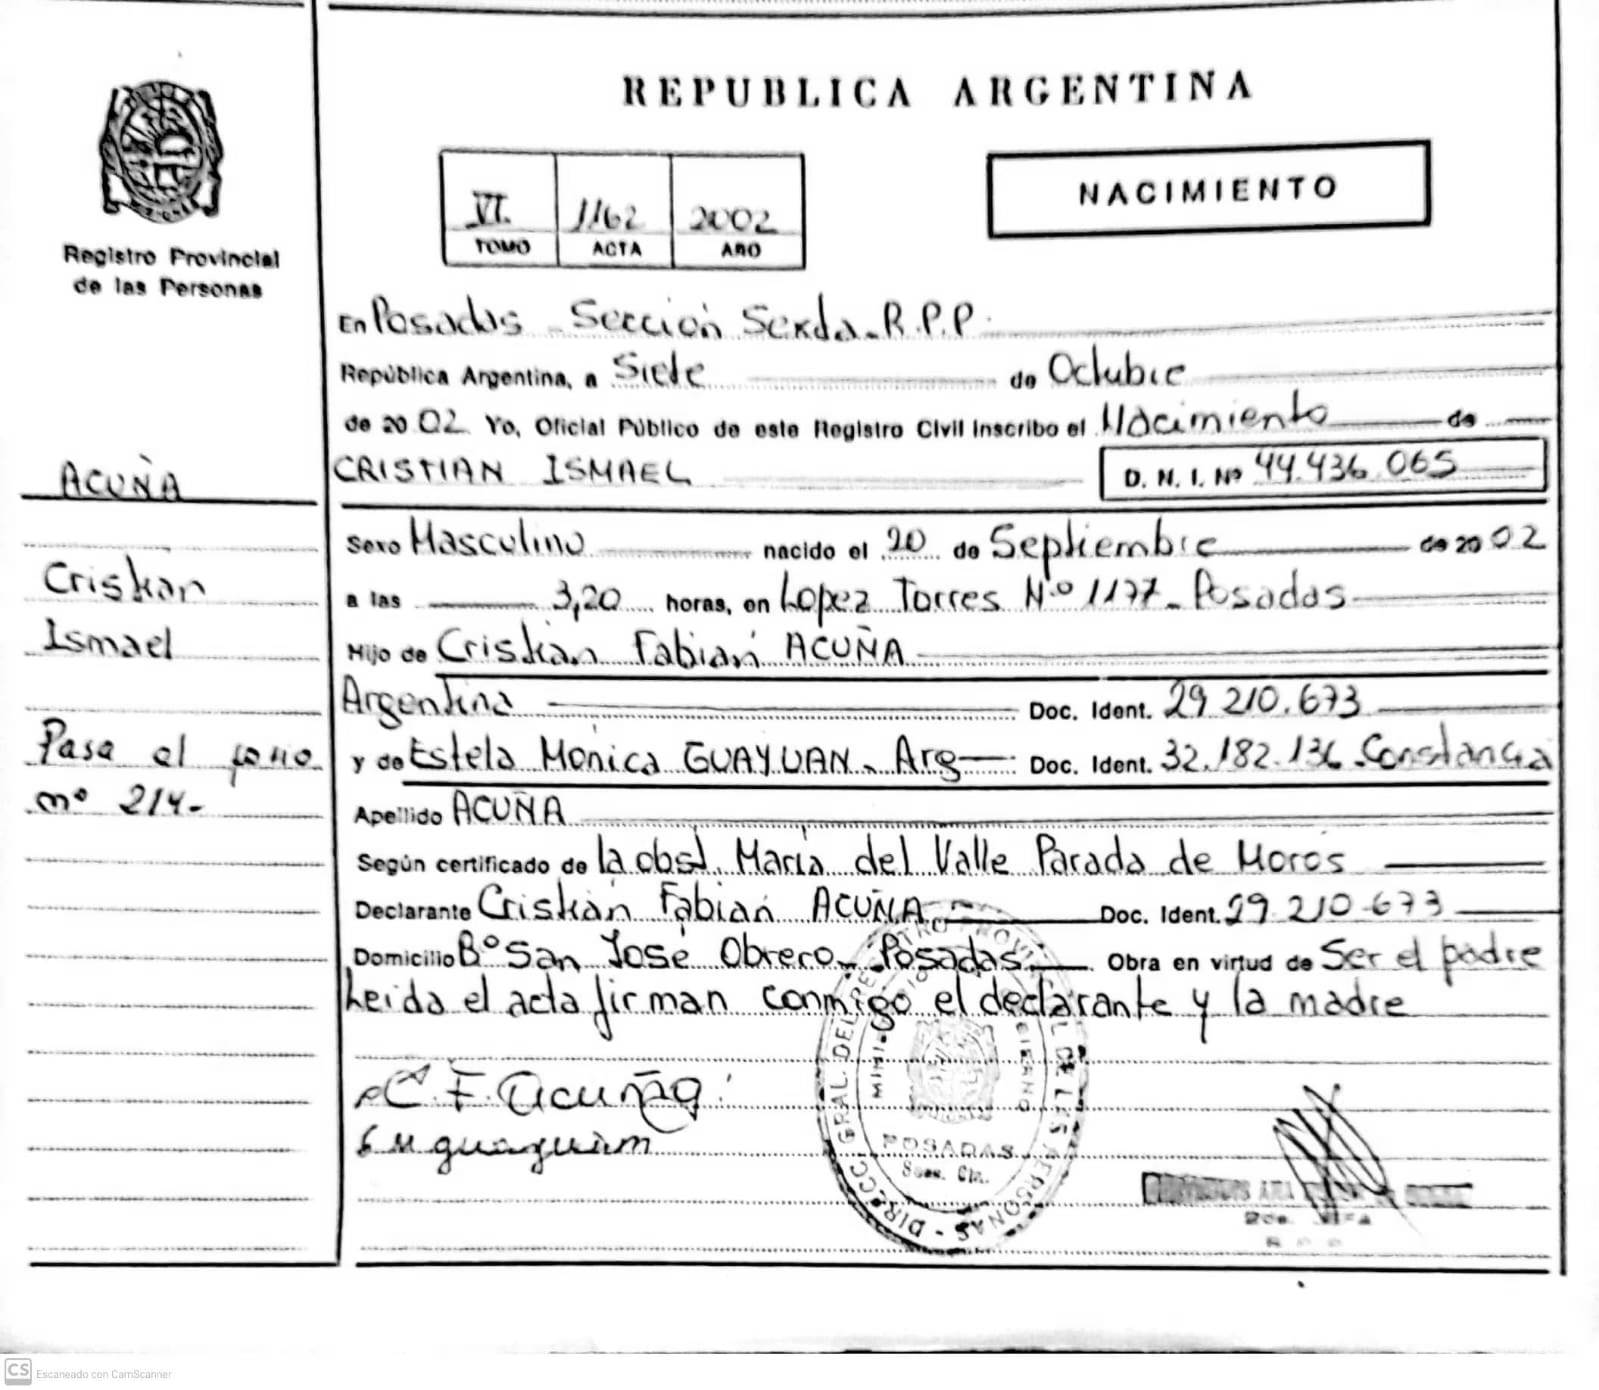 REPUBLICA ARGENTINA
NACIMIENTO
VI. 1162 2002
TOMO ACTA AÑO
Registro Provincial
de las Personas
En Posadas - Sección Sexta - R.P.P.
República Argentina, a Siete de Octubre
de 2002 Yo, Oficial Público de este Registro Civil inscribo el Nacimiento de
CRISTIAN ISMAEL D. N. I. Nº 44.436.065
Sexo Masculino nacido el 20 de Septiembre de 2002
a las 3,20 horas, en Lopez Torres Nº 1177 - Posadas
Hijo de Cristián Fabián ACUÑA
Argentina Doc. Ident. 29 210.673
y de Estela Mónica GUAYUAN - Arg Doc. Ident. 32.182.136 Constancia
Apellido ACUÑA
Según certificado de la obst. María del Valle Parada de Moros
Declarante Cristián Fabián ACUÑA Doc. Ident. 29 210.673
Domicilio Bº San José Obrero - Posadas Obra en virtud de Ser el padre
Leida el acta firman conmigo el declarante y la madre
C. F. Acuña
E M guayuan
ACUÑA
Cristian
Ismael
Pasa al folio
nº 214-
DIRECC. GRAL. DEL REGISTRO PROVINCIAL DE LAS PERSONAS
POSADAS
R. P. P.
CS Escaneado con CamScanner